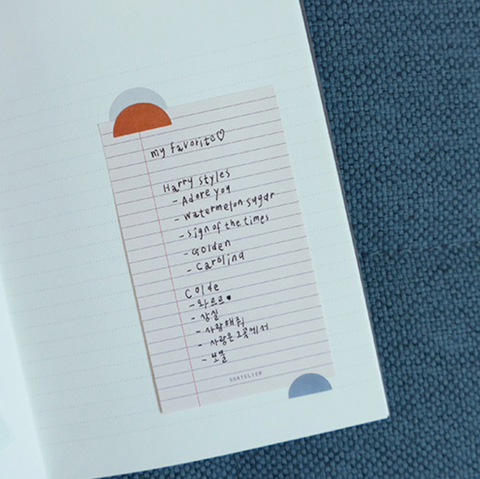 my favorite♡
Harry styles
- Adore you
- Watermelon sugar
- Sign of the times
- Golden
- Carolina
Colde
- 와르르♥
- 상실
- 사랑해줘
- 사랑은 그곳에서
- 보물
OURTELIER